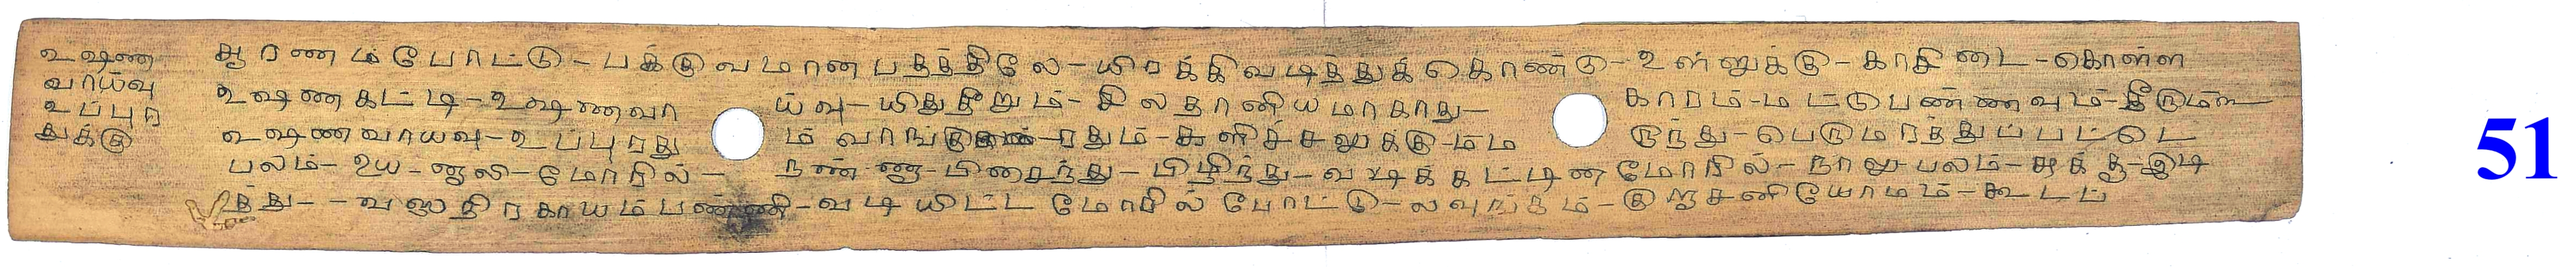 உஷ்ண
வாய்வு
உப்புற
துக்கு
சூரணம்போட்டு - பக்குவமான பதத்திலே - யிறக்கிவடித்துக்கொண்டு - உள்ளுக்கு - காசிடை - கொள்ள
உஷணகட்டி - உஷணவாய்வு - யிதுதீறும் - சிலதானியமாகாது - காரம் - மட்டுபண்ணவும் - தீரும்
உஷணவாயவு - உப்புறதும் வாங்கு - றதும் - களிச்சலுக்கு - ம்மருந்து - பெருமரத்துப்பட்டை
பலம் - உய - னூலி - மோரில் - நண்ணூ - பிசைந்து - பிழிந்து - வடிக்கட்டின மோரில் - நாலு பலம் - சுக்கு - இடி
த்து - - வஸநிரகாயம்பண்ணி - வடியிட்ட மோரில் போட்டு - லவுங்கம் - குறுசனியோமம் - கூடப்
51